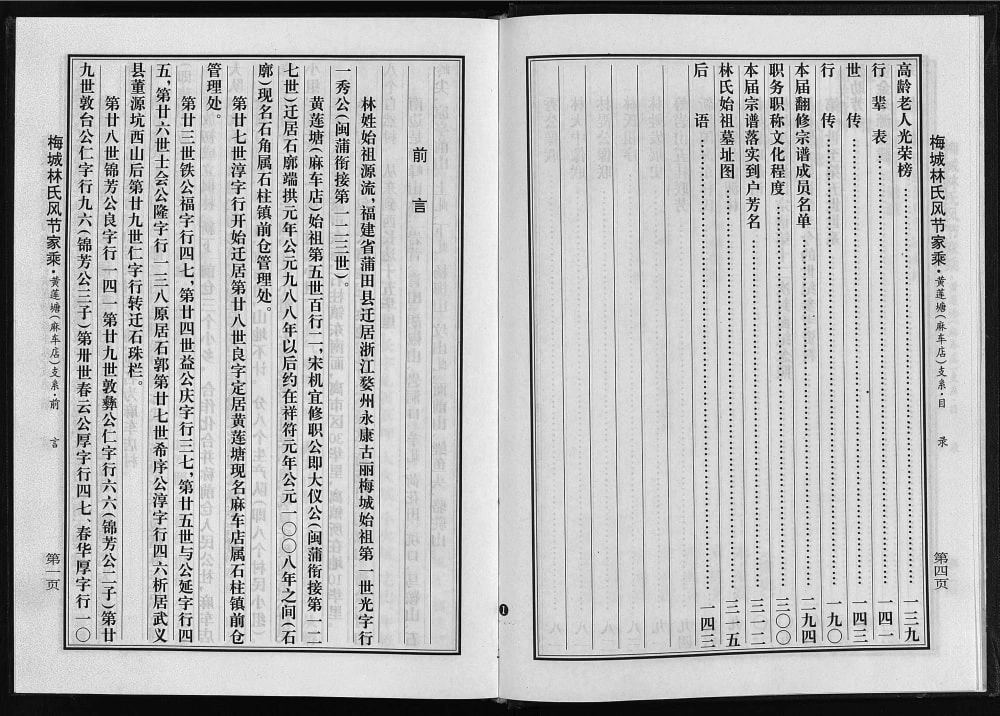 梅城林氏风节家乘·黄莲塘（麻车店）支系·目　录
第四页
高龄老人光荣榜……一三九
行　辈　表……一四一
世　传……一四三
行　传……一九〇
本届翻修宗谱成员名单……二九四
职务职称文化程度……三〇〇
本届宗谱落实到户芳名……三一二
林氏始祖墓址图……三一五
后　语……一四三
前　言
林姓始祖源流，福建省蒲田县迁居浙江婺州永康古丽梅城始祖第一世光字行
一秀公（闽蒲衔接第一二三世）。
黄莲塘（麻车店）始祖第五世百行二，宋机宜修职公即大仪公（闽蒲衔接第一二
七世）迁居石廓端拱元年公元九八八年以后约在祥符元年公元一〇〇八年之间（石
廓）现名石角属石柱镇前仓管理处。
第廿七世淳字行开始迁居第廿八世良字定居黄莲塘现名麻车店属石柱镇前仓
管理处。
第廿三世铁公福字行四七，第廿四世益公庆字行三七，第廿五世与公延字行四
五，第廿六世士会公隆字行一三八原居石郭第廿七世希序公淳字行四六析居武义
县董源坑西山后第廿九世仁字行转迁石珠栏。
第廿八世锦芳公良字行一四一第廿九世敦彝公仁字行六六（锦芳公二子）第廿
九世敦台公仁字行九六（锦芳公三子）第卅世春云公厚字行四七、春华厚字行一〇
梅城林氏风节家乘·黄莲塘（麻车店）支系·前　言
第一页
1